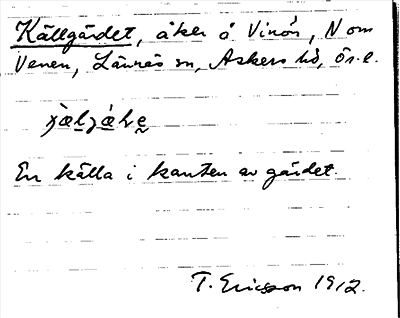 Källgärdet, åker å Vinön, N om
Venen, Lännäs sn, Askers hd, ör. l.
En källa i kanten av gärdet.
T. Ericsson 1912.